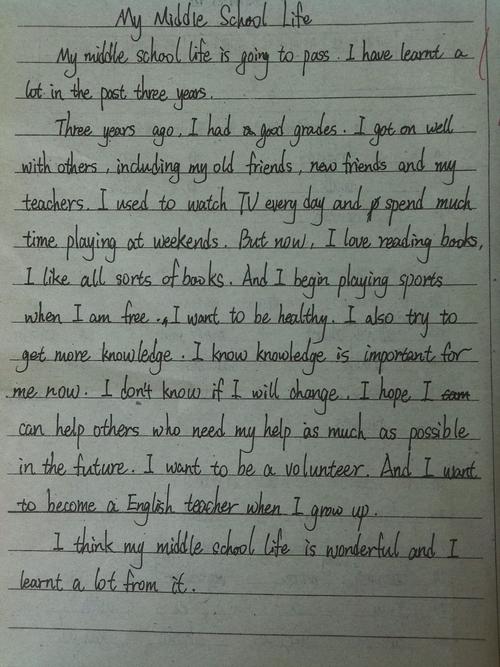 My Middle School Life
My middle school life is going to pass. I have learnt a
lot in the past three years.
Three years ago, I had good grades. I got on well
with others, including my old friends, new friends and my
teachers. I used to watch TV every day and spend much
time playing at weekends. But now, I love reading books,
I like all sorts of books. And I begin playing sports
when I am free. I want to be healthy. I also try to
get more knowledge. I know knowledge is important for
me now. I don't know if I will change. I hope I
can help others who need my help as much as possible
in the future. I want to be a volunteer. And I want
to become a English teacher when I grow up.
I think my middle school life is wonderful and I
learnt a lot from it.